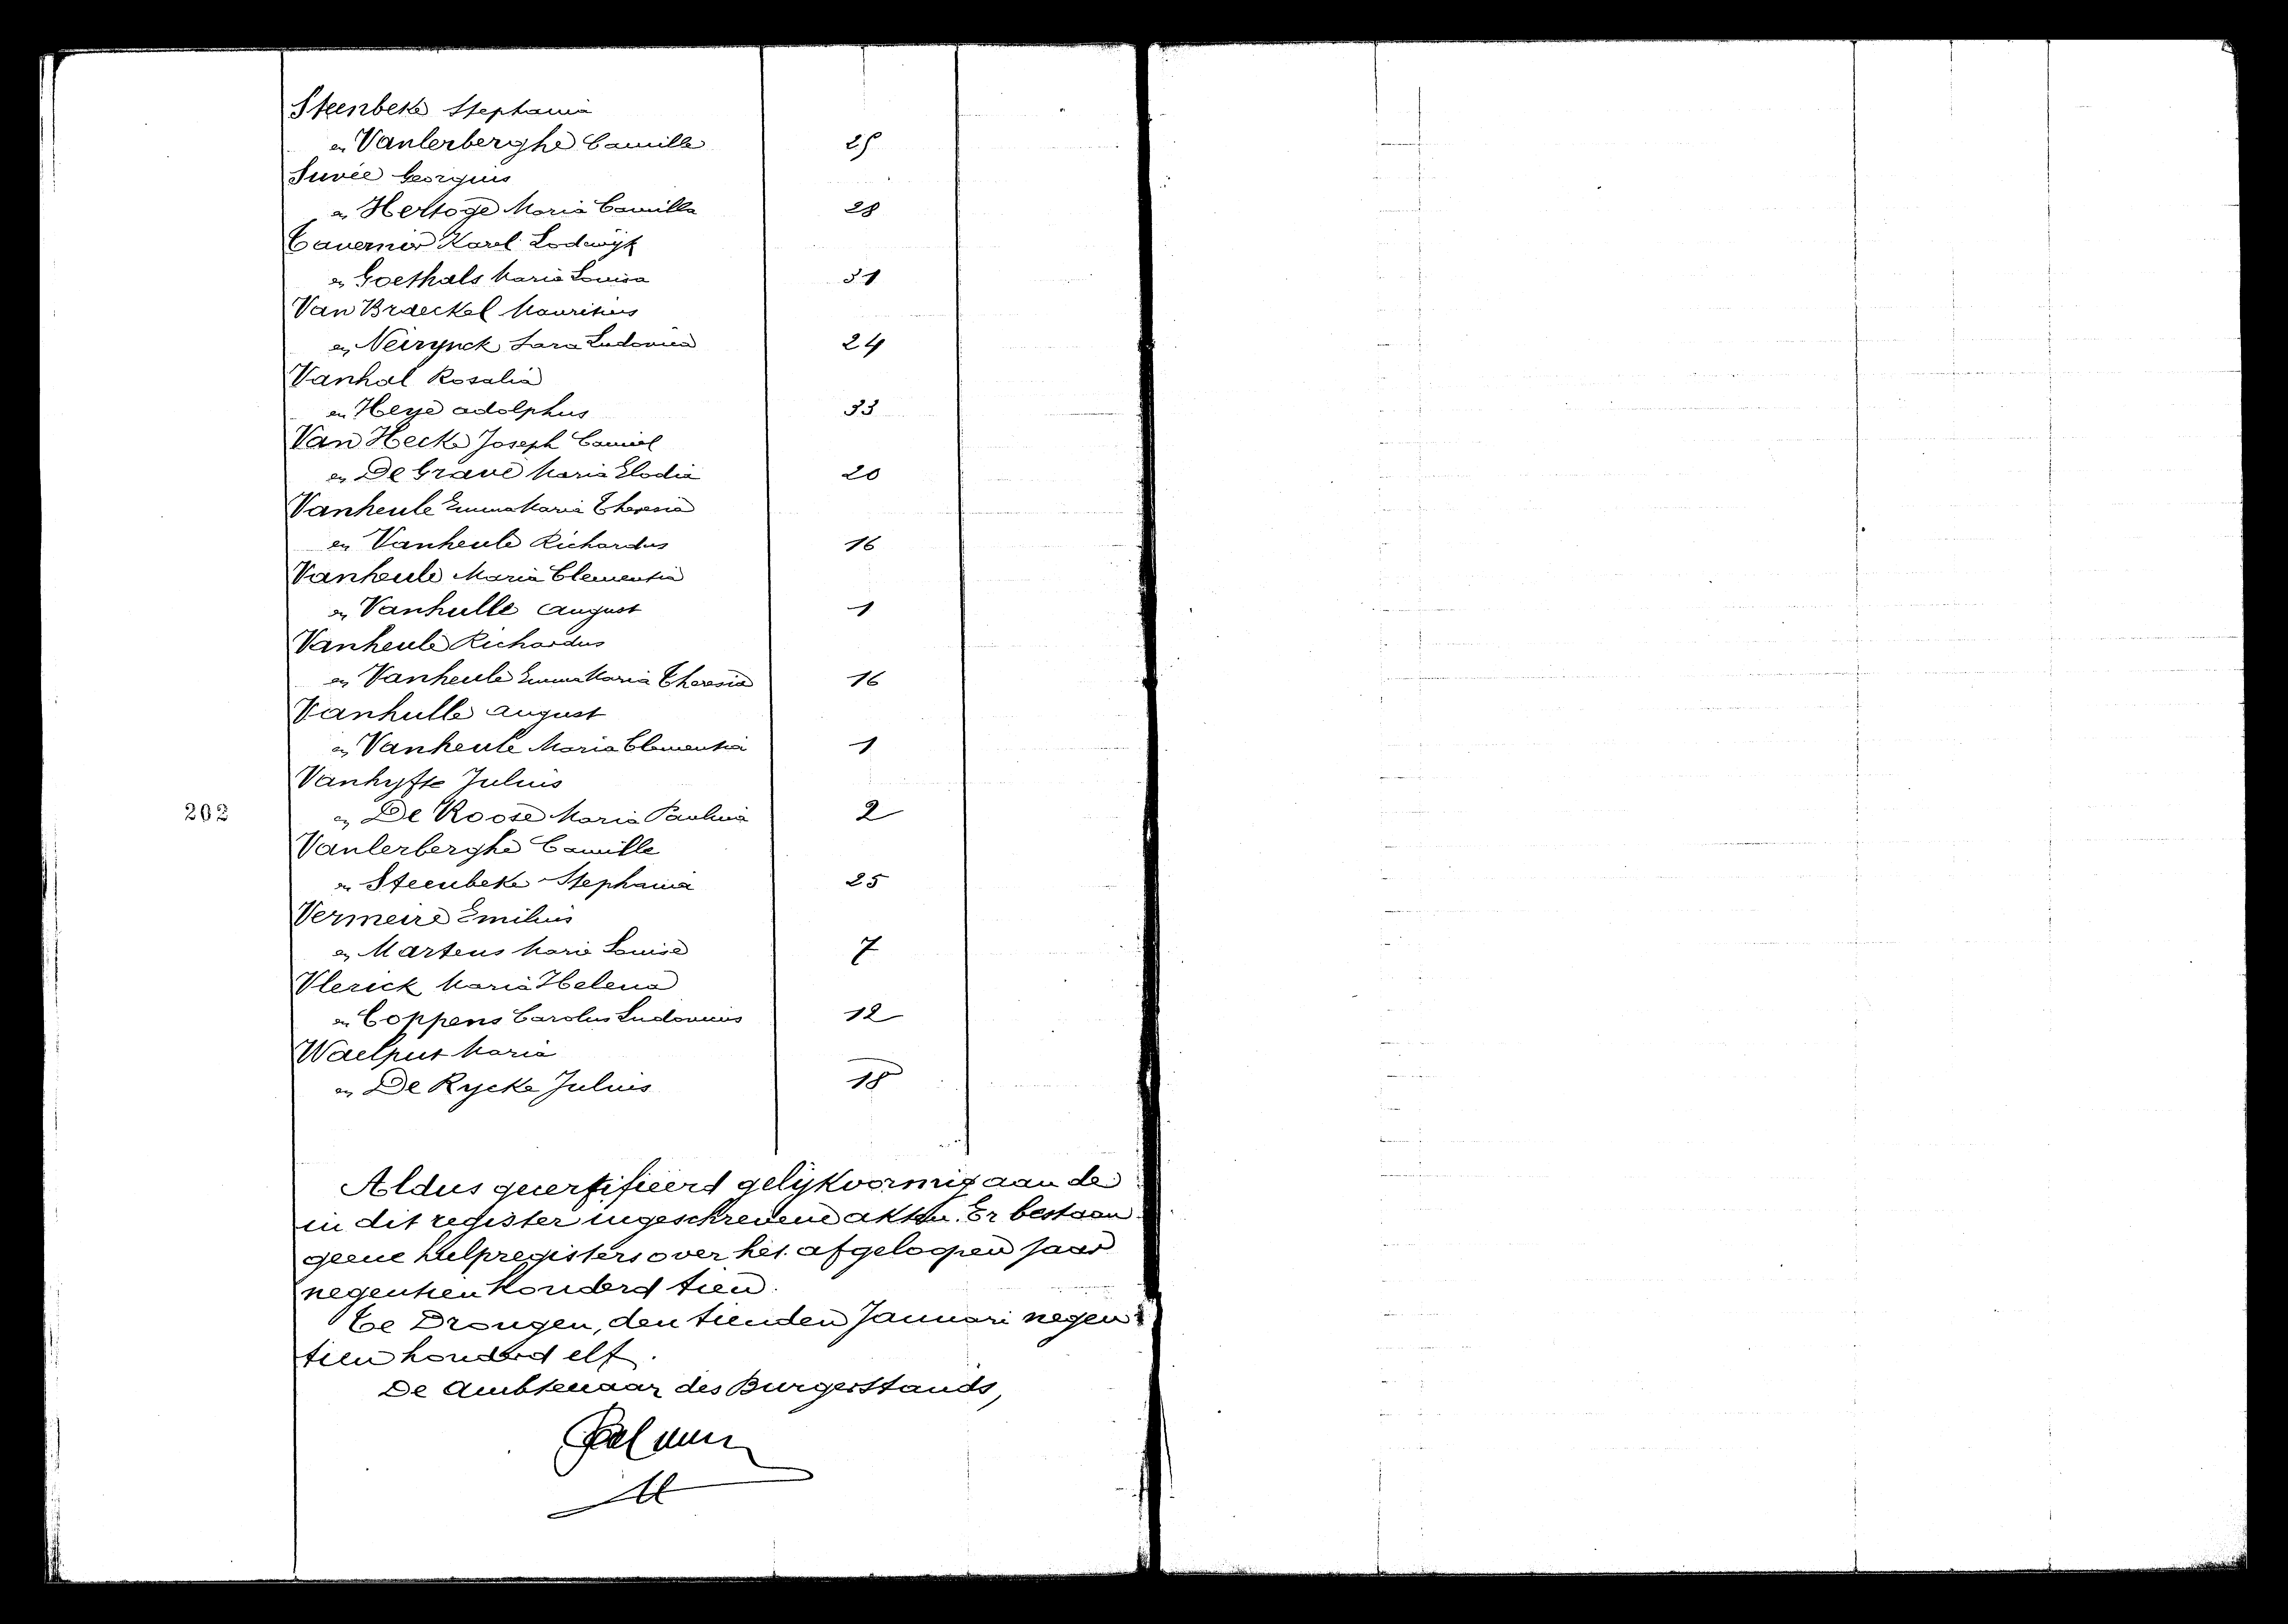 Steenbeke Stephania
en Vanlerberghe Camille 25
Suvée Georgius
en Hertoge Maria Camilla 28
Tavernier Karel Lodewijk
en Goethals Maria Louisa 31
Van Braeckel Mauritius
en Neirynck Sara Ludovica 24
Vanhal Rosalia
en Heye adolphus 33
Van Hecke Joseph Camiel
en De Grave Maria Elodia 20
Vanheule Emma Maria Theresia
en Vanheule Richardus 16
Vanheule Maria Clementia
en Vanhulle august 1
Vanheule Richardus
en Vanheule Emma Maria Theresia 16
Vanhulle august
en Vanheule Maria Clementia 1
Vanhyfte Julius
202 en De Roose Maria Paulina 2
Vanlerberghe Camille
en Steenbeke Stephania 25
Vermeire Emilius
en Martens Marie Louise 7
Vlerick Maria Helena
en Coppens Carolus Ludovicus 12
Waelput Maria
en De Rycke Julius 18
Aldus gecertifieerd gelijkvormig aan de
in dit register ingeschrevene akten. Er bestaan
geene hulpregisters over het afgeloopen jaar
negentien honderd tien.
Te Drongen, den tienden Januari negen
tien honderd elf.
De Ambtenaar des Burgerstands,